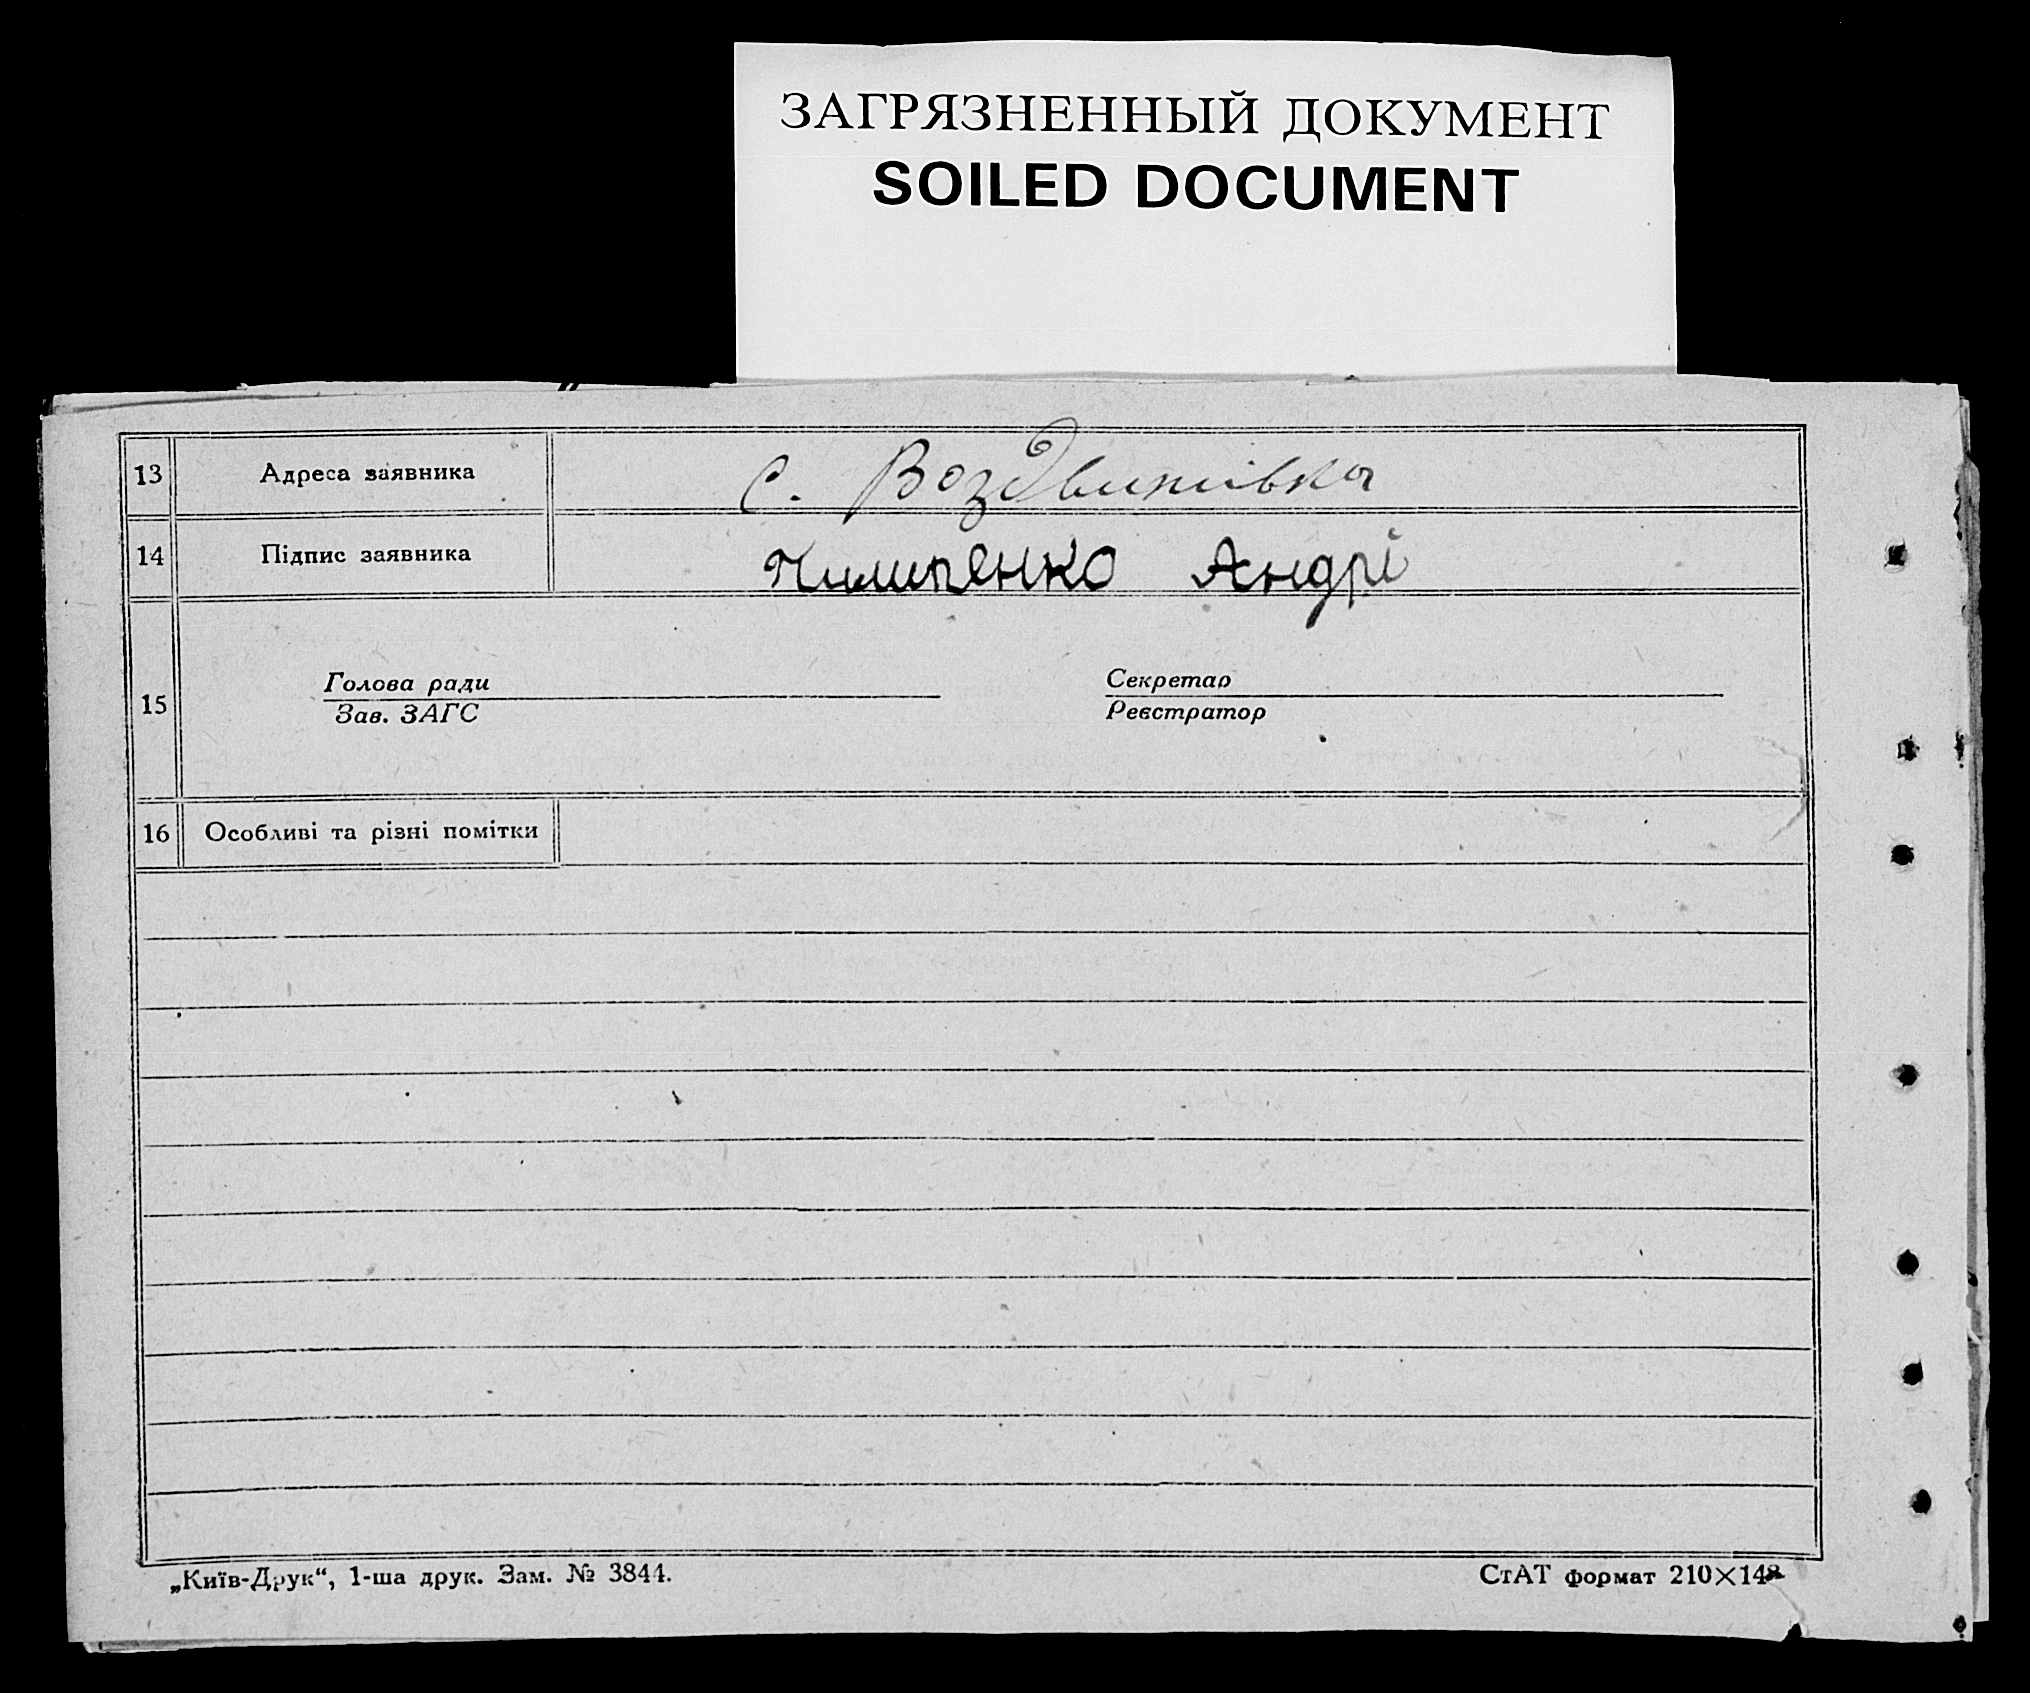 ЗАГРЯЗНЕННЫЙ ДОКУМЕНТ
SOILED DOCUMENT
13 Адреса заявника с. Воздвижівка
14 Підпис заявника Андрі
15
Голова ради Секретар
Зав. ЗАГС Реєстратор
16 Особливі та різні помітки
„Київ-Друк“, 1-ша друк. Зам. № 3844. СтАТ формат 210×148